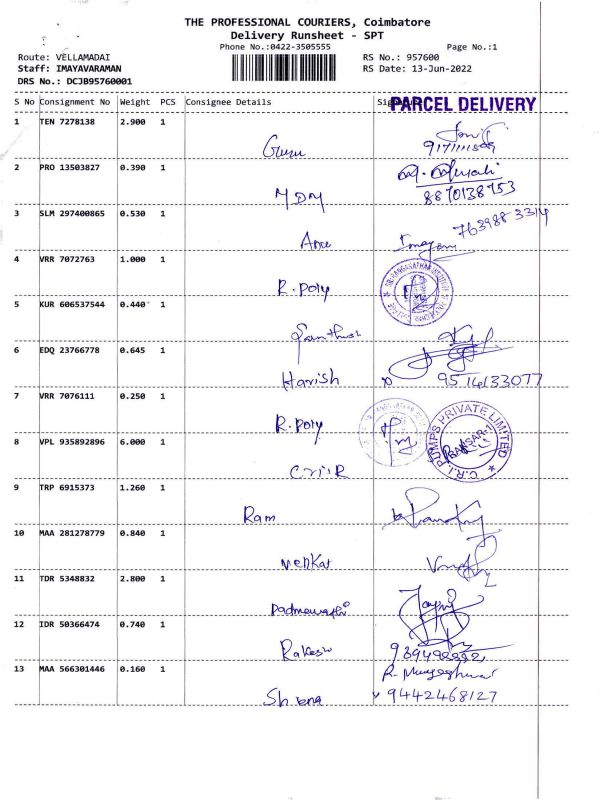 THE PROFESSIONAL COURIERS, Coimbatore
Delivery Runsheet - SPT
Phone No.:0422-3505555
Page No.:1
Route: VELLAMADAI
RS No.: 957600
Staff: IMAYAVARAMAN
RS Date: 13-Jun-2022
DRS No.: DCJB95760001
S No Consignment No Weight PCS Consignee Details
PARCEL DELIVERY
1 TEN 7278138 2.900 1
Guru
2 PRO 13503827 0.390 1
MDM 8870138753
3 SLM 297400865 0.530 1
7639883314
4 VRR 7072763 1.000 1
R. poly
5 KUR 606537544 0.440 1
Santhosh
6 EDQ 23766778 0.645 1
Harish 9514133077
7 VRR 7076111 0.250 1
R. poly
C.R.I. PUMPS PRIVATE LIMITED
8 VPL 935892896 6.000 1
9 TRP 6915373 1.260 1
Ram
10 MAA 281278779 0.840 1
Venkat
11 TDR 5348832 2.800 1
Padmavathi
12 IDR 50366474 0.740 1
Rakesh
13 MAA 566301446 0.160 1
9442468127